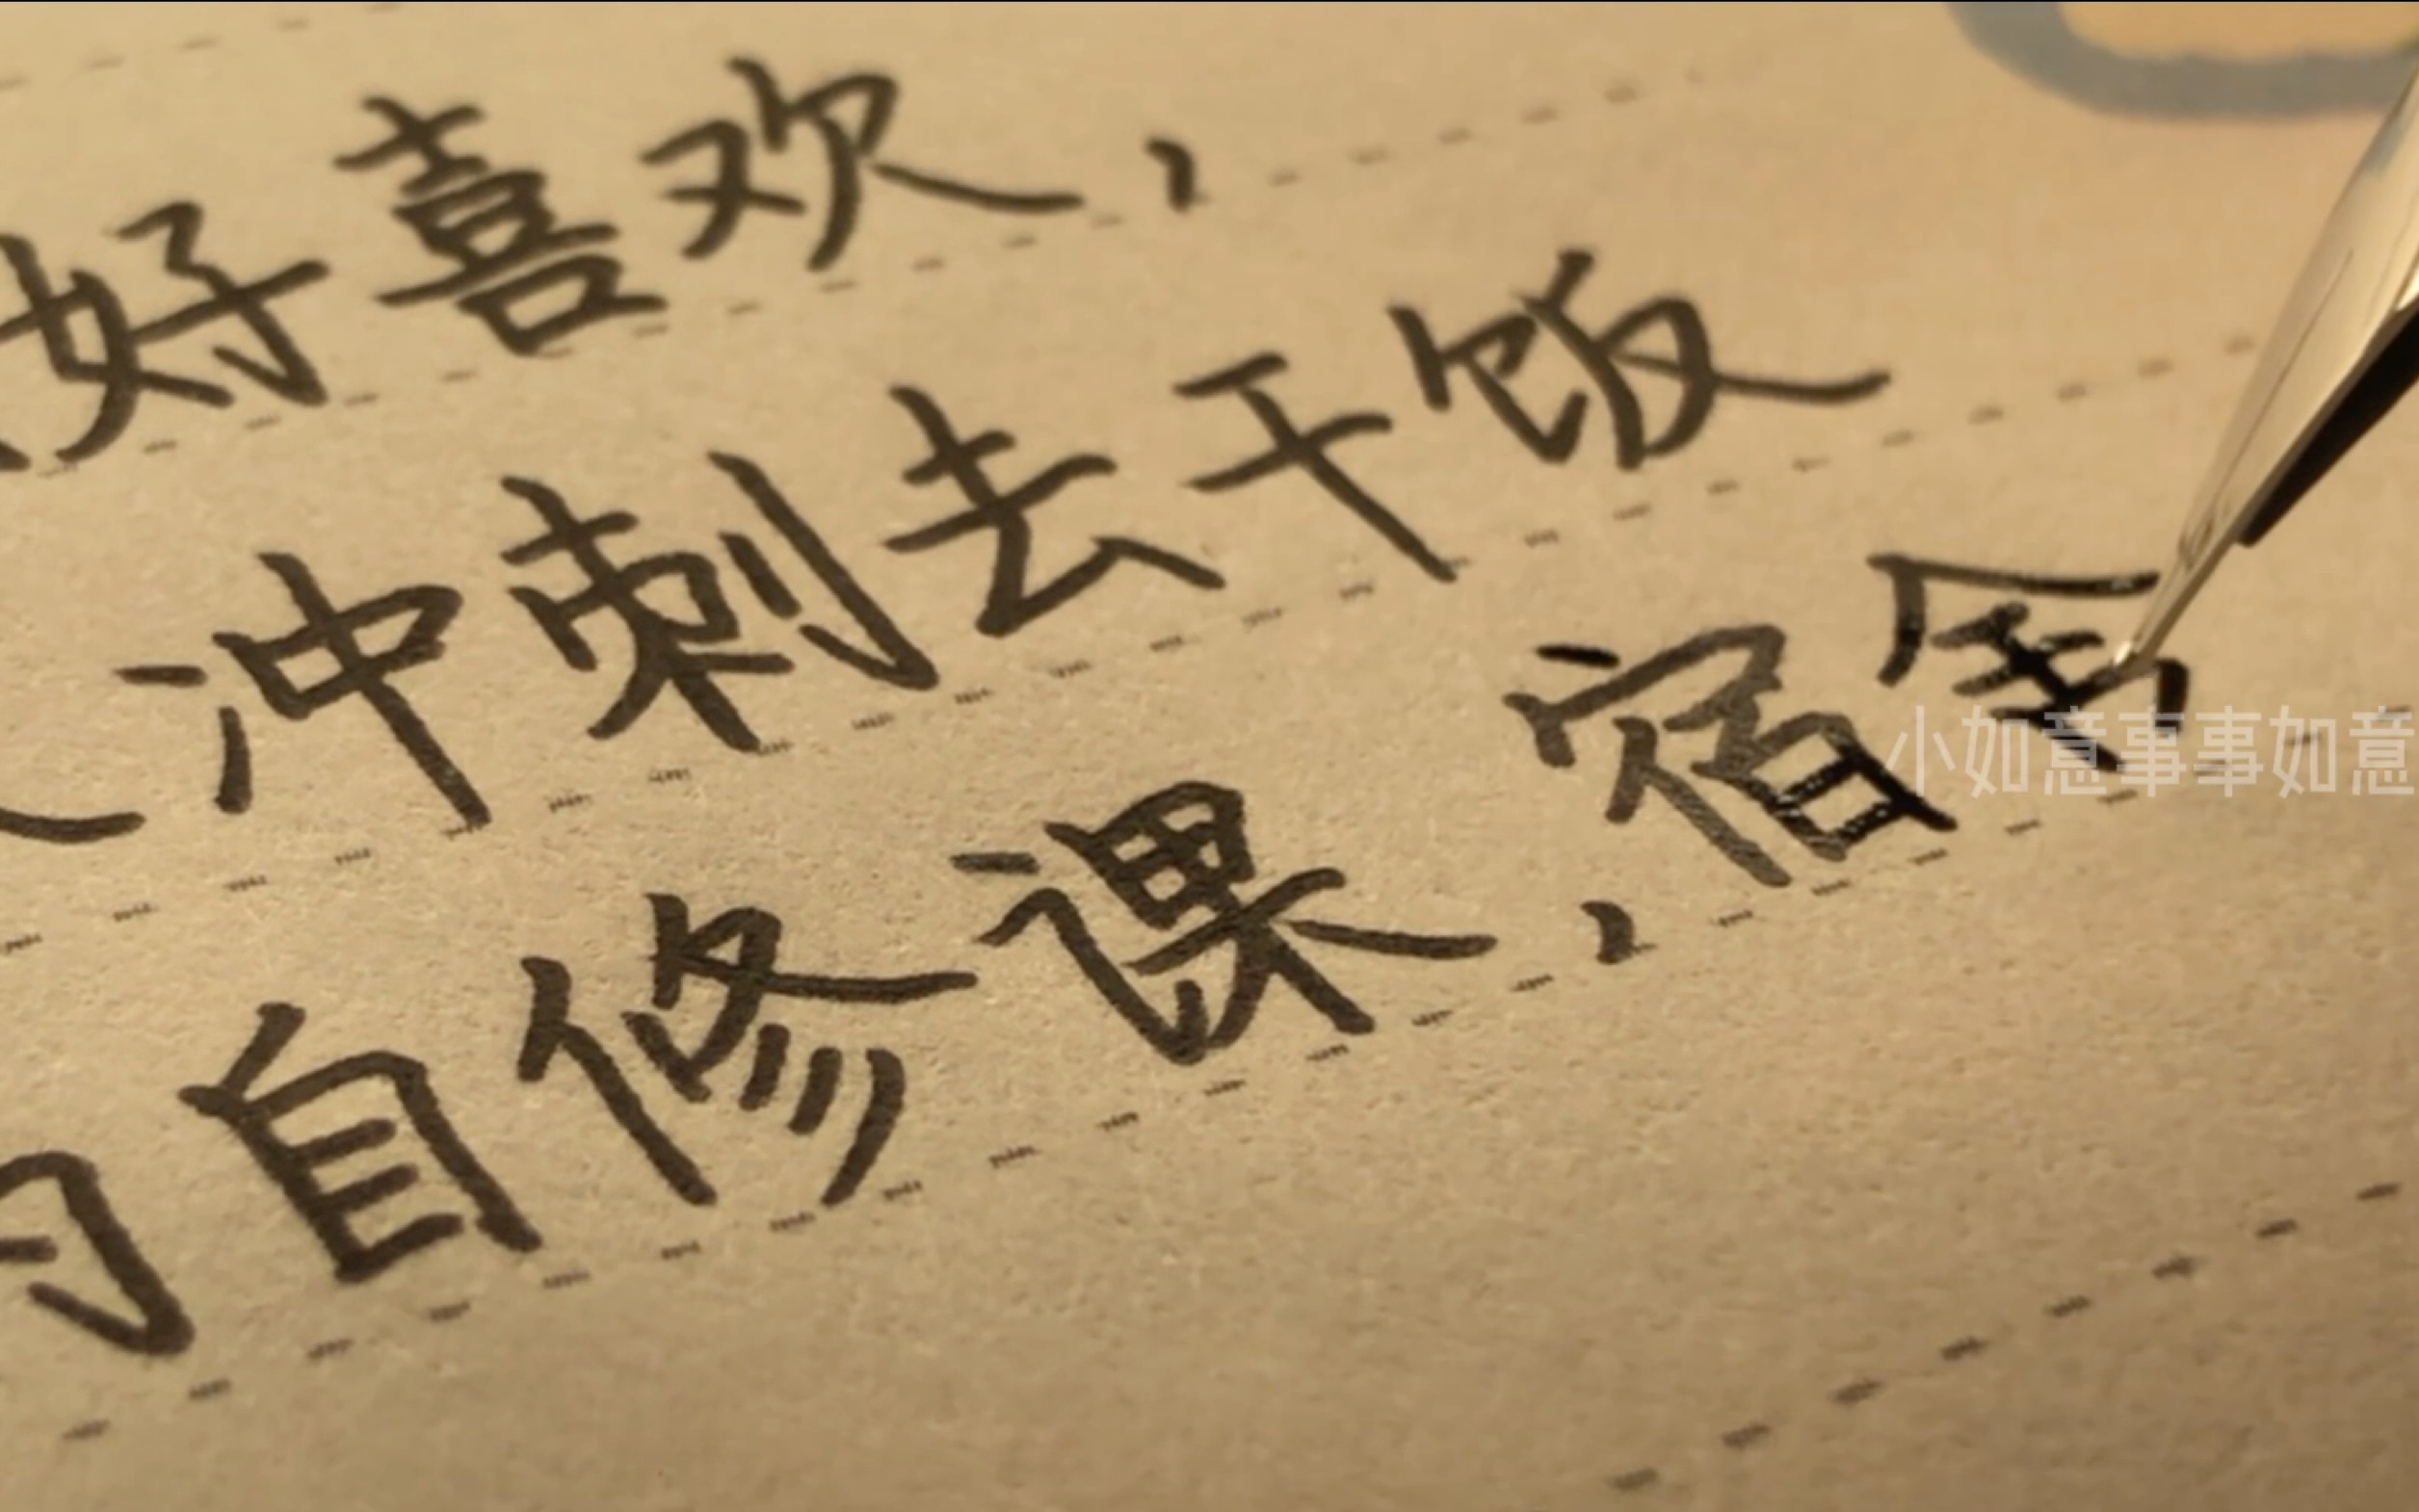 好喜欢,
冲刺去干饭
自修课,宿舍
小如意事事如意